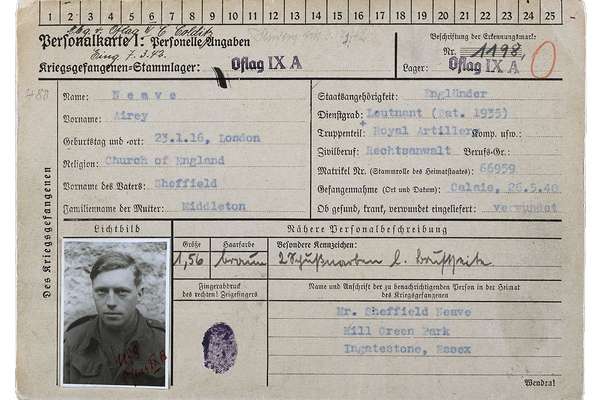 1 2 3 4 5 6 7 8 9 10 11 12 13 14 15 16 17 18 19 20 21 22 23 24 25
v. Oflag IV C Colditz
Personalkarte I: Personelle Angaben
Beschriftung der Erkennungsmarke:
Eing. 7.3.43.
Nr. 1198
Kriegsgefangenen-Stammlager: Oflag IX A
Lager: Oflag IX A
480
Des Kriegsgefangenen
Name: Neave
Staatsangehörigkeit: Engländer
Vorname: Airey
Dienstgrad: Leutnant (Pat. 1935)
Truppenteil: Royal Artillery Komp. usw.:
Geburtstag und -ort: 23.1.16, London
Zivilberuf: Rechtsanwalt Berufs-Gr.:
Religion: Church of England
Matrikel Nr. (Stammrolle des Heimatstaates): 66959
Vorname des Vaters: Sheffield
Gefangennahme (Ort und Datum): Calais, 26.5.40
Familienname der Mutter: Middleton
Ob gesund, krank, verwundet eingeliefert: verwundet
Lichtbild
Nähere Personalbeschreibung
Größe
Haarfarbe
Besondere Kennzeichen:
1,56
braun
2 Schußnarben l. Brustseite
Fingerabdruck
des rechten! Zeigefingers
Name und Anschrift der zu benachrichtigenden Person in der Heimat
des Kriegsgefangenen
Mr. Sheffield Neave
Mill Green Park
Ingatestone, Essex
1198
Oflag IX A
Wenden!